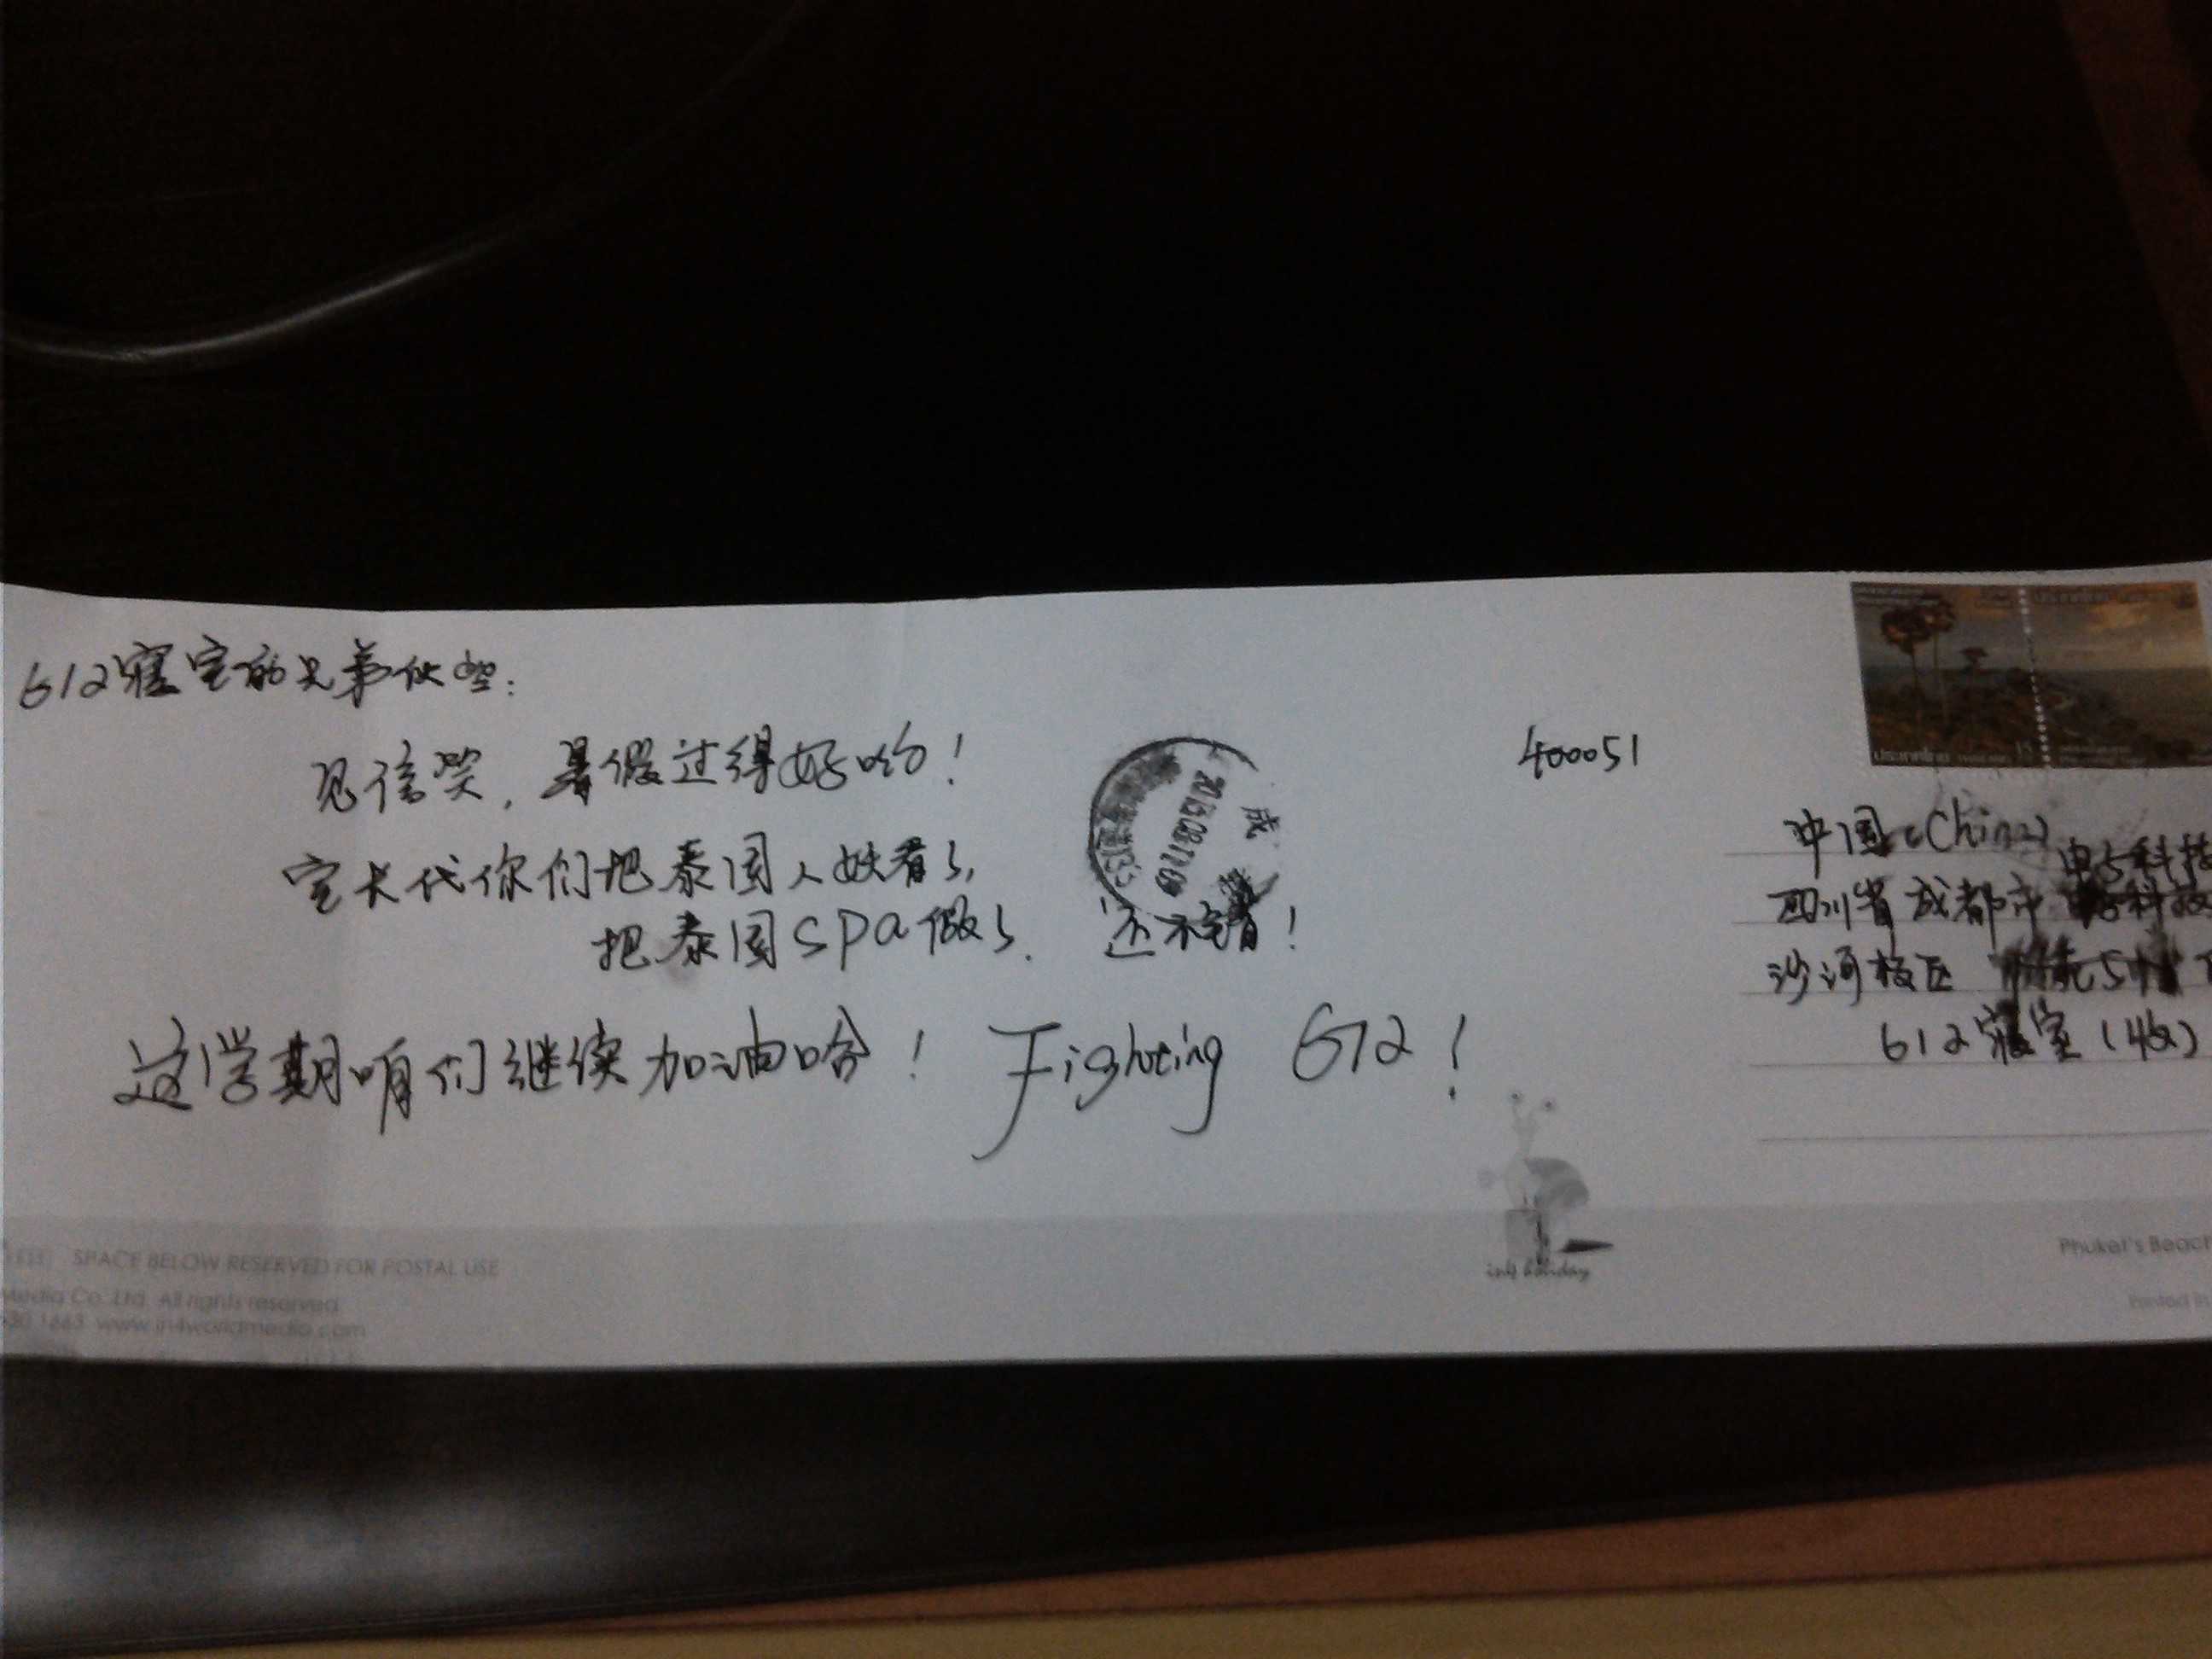 612寝室的兄弟伙些：
见信笑，暑假过得好哈！
室长代你们把泰国人妖看了，
把泰国spa做了. 还不错！
这学期咱们继续加油哈！ Fighting 612！
成
400051
中国 (China)
电子科技
四川省成都市
沙河校区
612寝室(收)
SPACE BELOW RESERVED FOR POSTAL USE
Media Co.,Ltd. All rights reserved
www.in4worldmedia.com
ink holiday
Phuket's Beach
Printed in